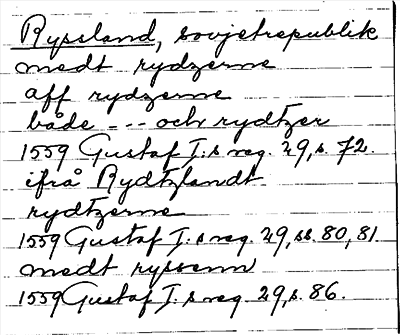 Ryssland, sovjetrepublik
medt rydzerne
aff rydzerne
både --- och rydtzer
1559 Gustaf I:s reg. 29, s. 72.
ifrå Rydtzlandt
rydtzerne
1559 Gustaf I:s reg. 29, ss. 80, 81.
medt ryssenn
1559 Gustaf I:s reg. 29, s. 86.